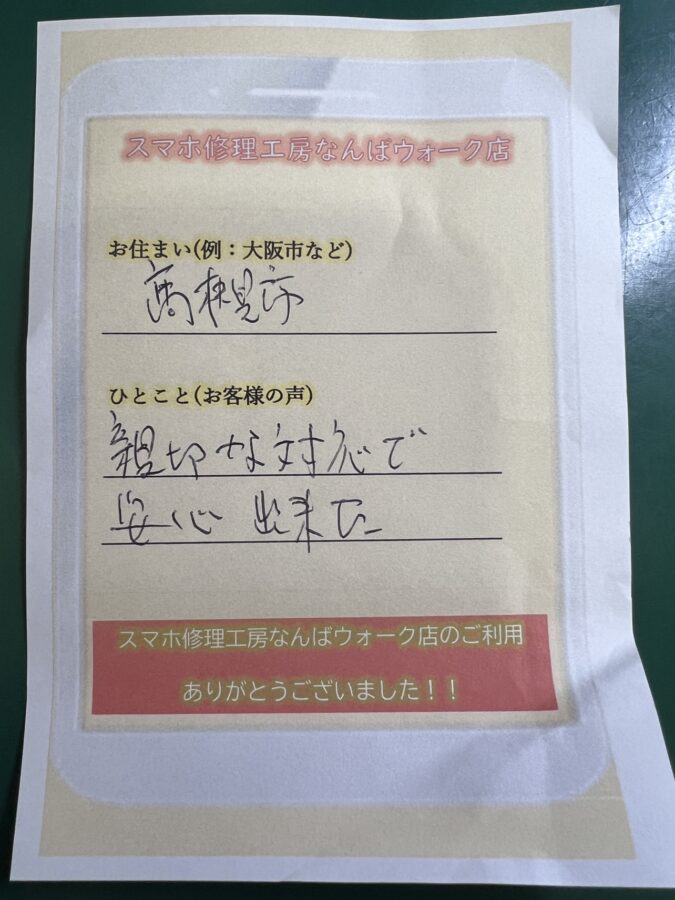 スマホ修理工房なんばウォーク店
お住まい(例：大阪市など)
高槻市
ひとこと(お客様の声)
親切な対応で
安心出来た
スマホ修理工房なんばウォーク店のご利用
ありがとうございました！！